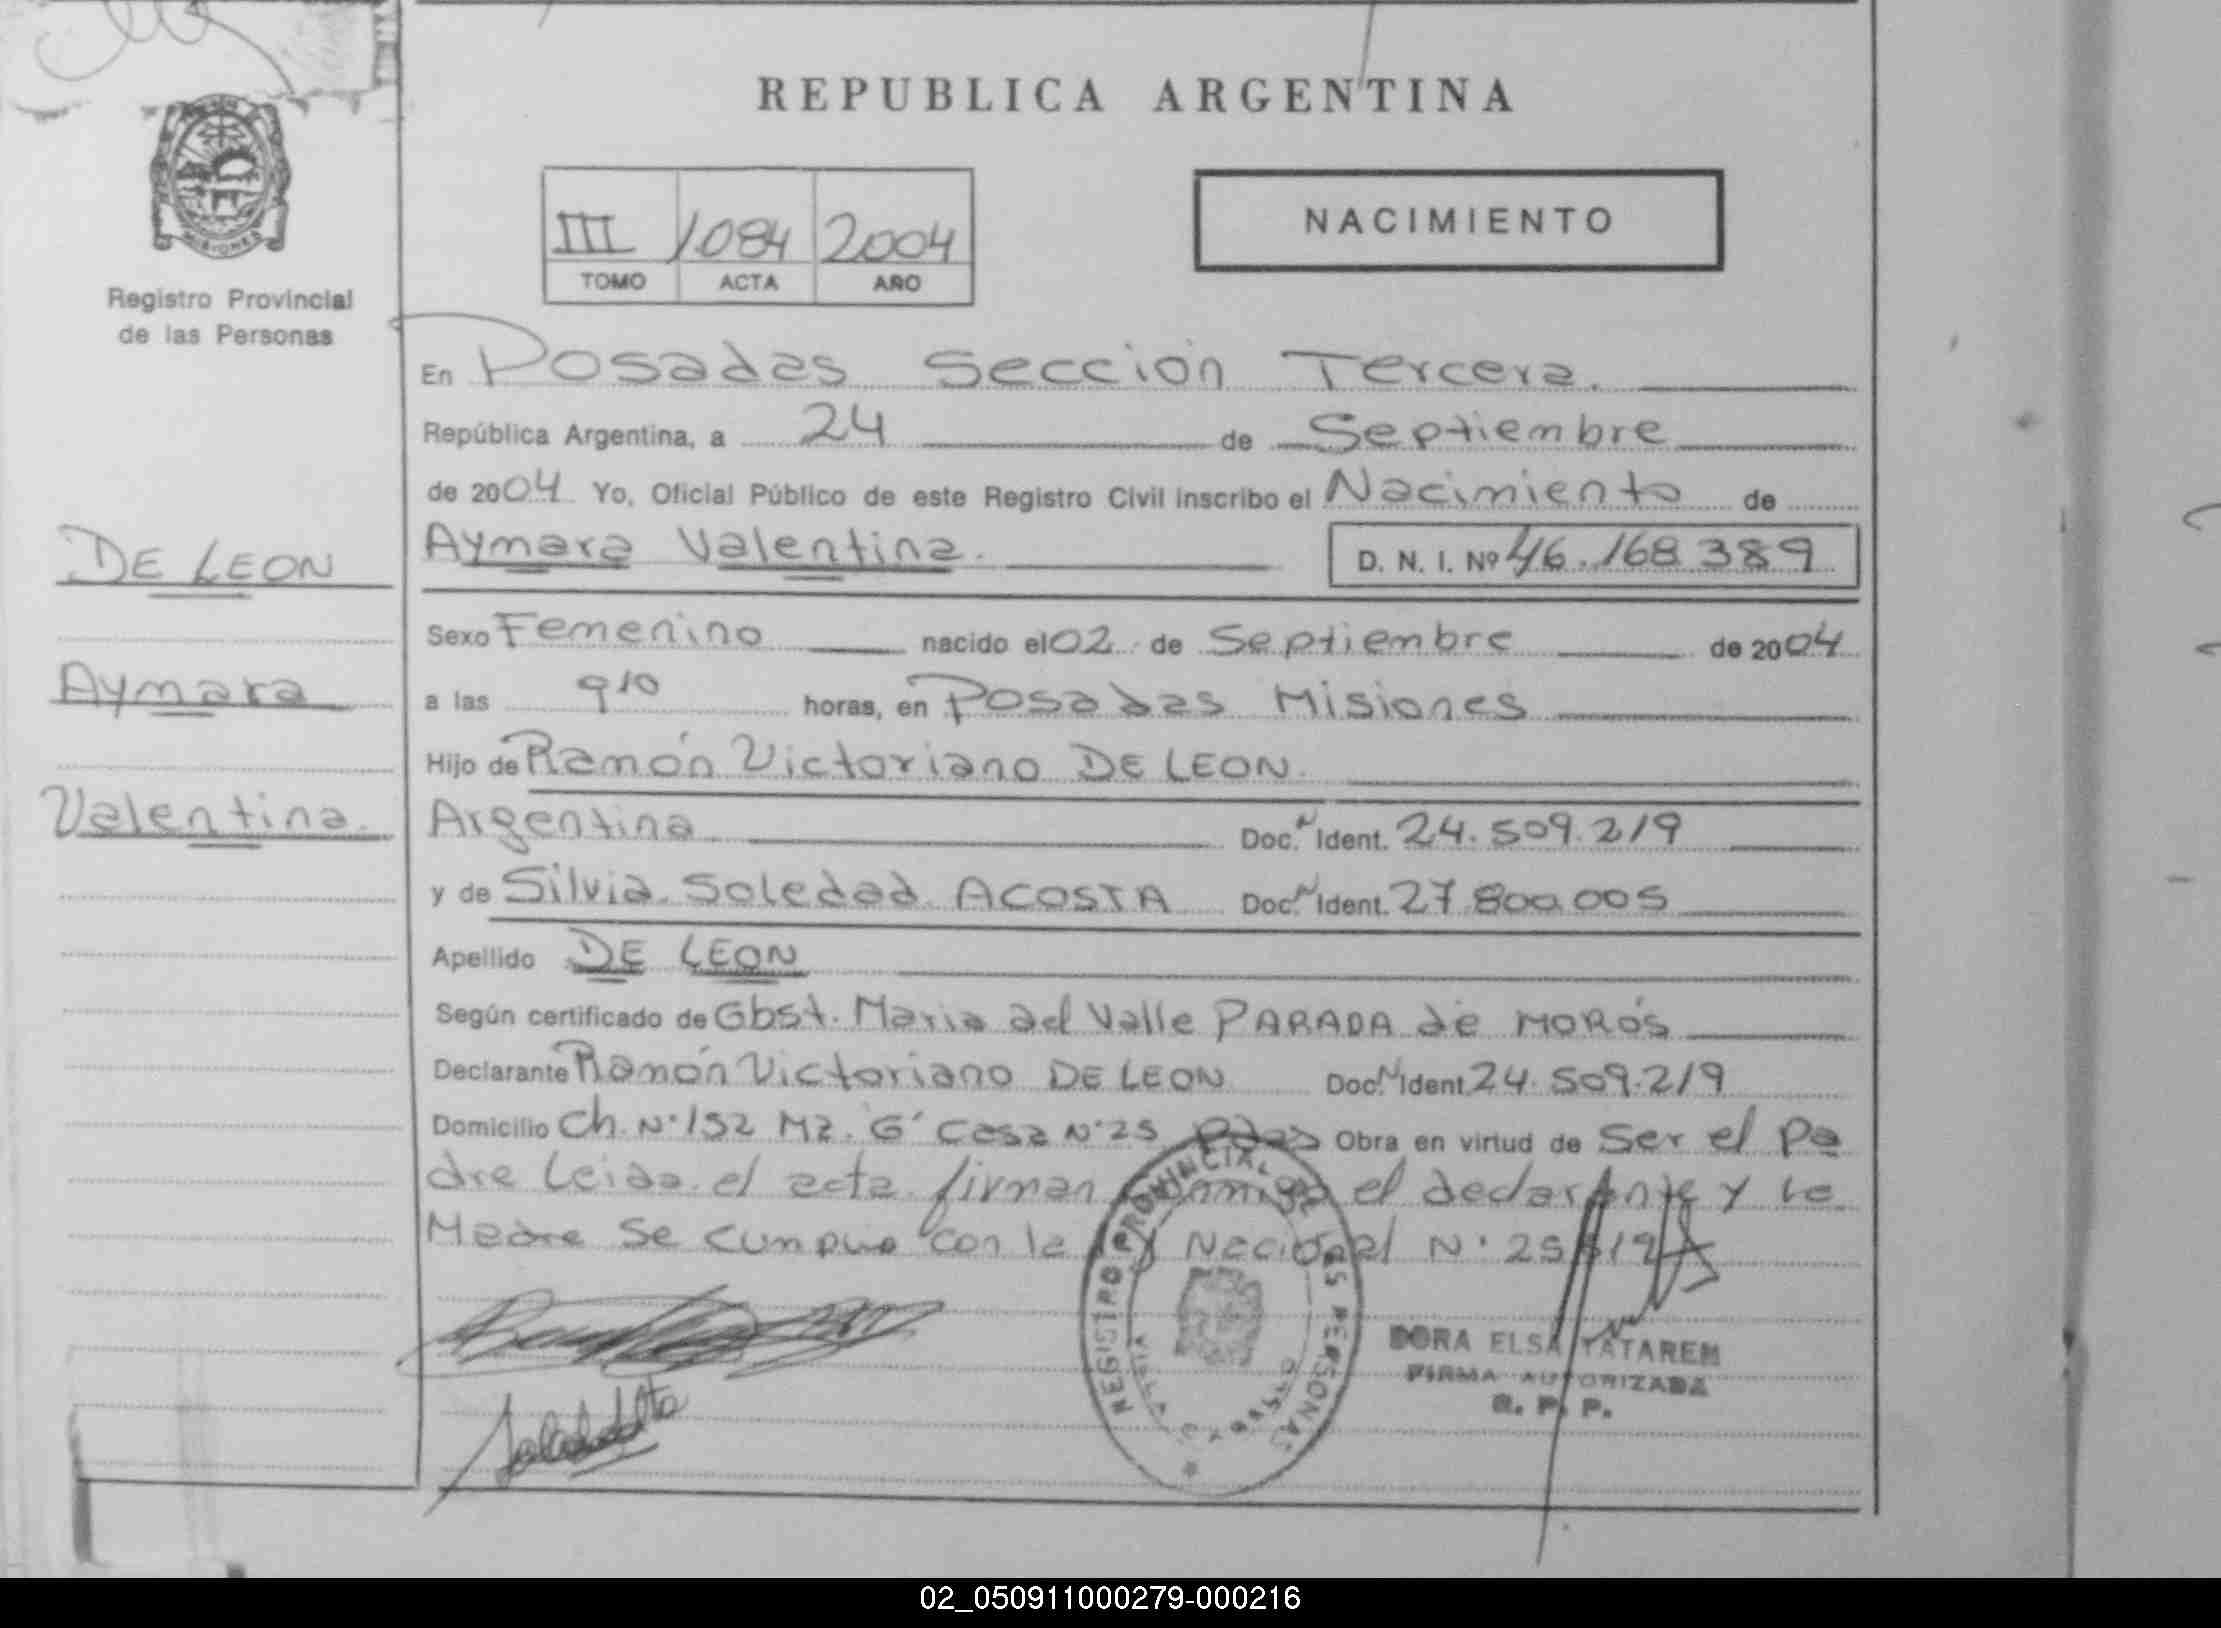 REPUBLICA ARGENTINA
MISIONES
Registro Provincial
de las Personas
III 1084 2004
TOMO ACTA AÑO
NACIMIENTO
En Posadas Sección Tercera.
República Argentina, a 24 de Septiembre
de 2004 Yo, Oficial Público de este Registro Civil inscribo el Nacimiento de
Aymara Valentina. D. N. I. Nº 46.168.389
DE LEON
Aymara
Valentina.
Sexo Femenino nacido el 02 de Septiembre de 2004
a las 9 10 horas, en Posadas Misiones
Hijo de Ramón Victoriano DE LEON.
Argentina Doc. N Ident. 24.509.219
y de Silvia Soledad ACOSTA Doc. N Ident. 27.800.005
Apellido DE LEON
Según certificado de Obst. Maria del Valle PARADA de MORÓS
Declarante Ramón Victoriano DE LEON Doc. N Ident. 24.509.219
Domicilio Ch. N° 152 Mz. 'G' Casa N° 25 Pdas Obra en virtud de Ser el Pa
dre Leida el acta firman conmigo el declarante y la
Madre Se cumplio con la ley Nacional N°
REGISTRO PROVINCIAL DE LAS PERSONAS
DORA ELSA TATAREN
FIRMA AUTORIZADA
R. P. P.
02_050911000279-000216